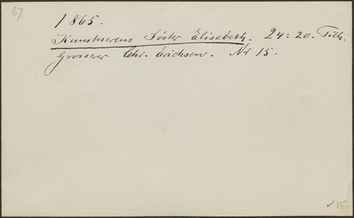 67
1865.
Kunstnerens Søster Elisabeth. 24=20. Tilh.
Grosserer Chr. Erichsen. Nr 15.
✓ 15